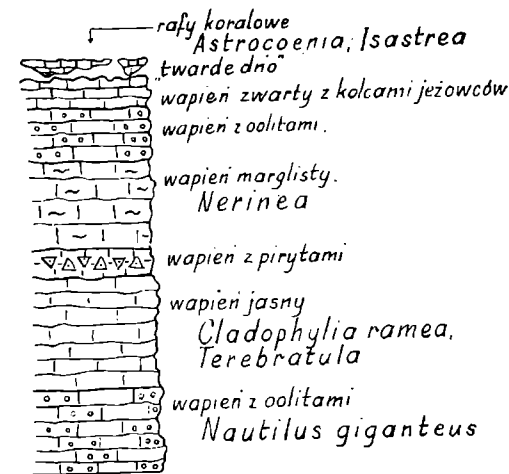 rafy koralowe
Astrocoenia, Isastrea
"twarde dno"
wapień zwarty z kolcami jeżowców
wapień z oolitami.
wapień marglisty.
Nerinea
wapień z pirytami
wapień jasny
Cladophylia ramea,
Terebratula
wapień z oolitami
Nautilus giganteus